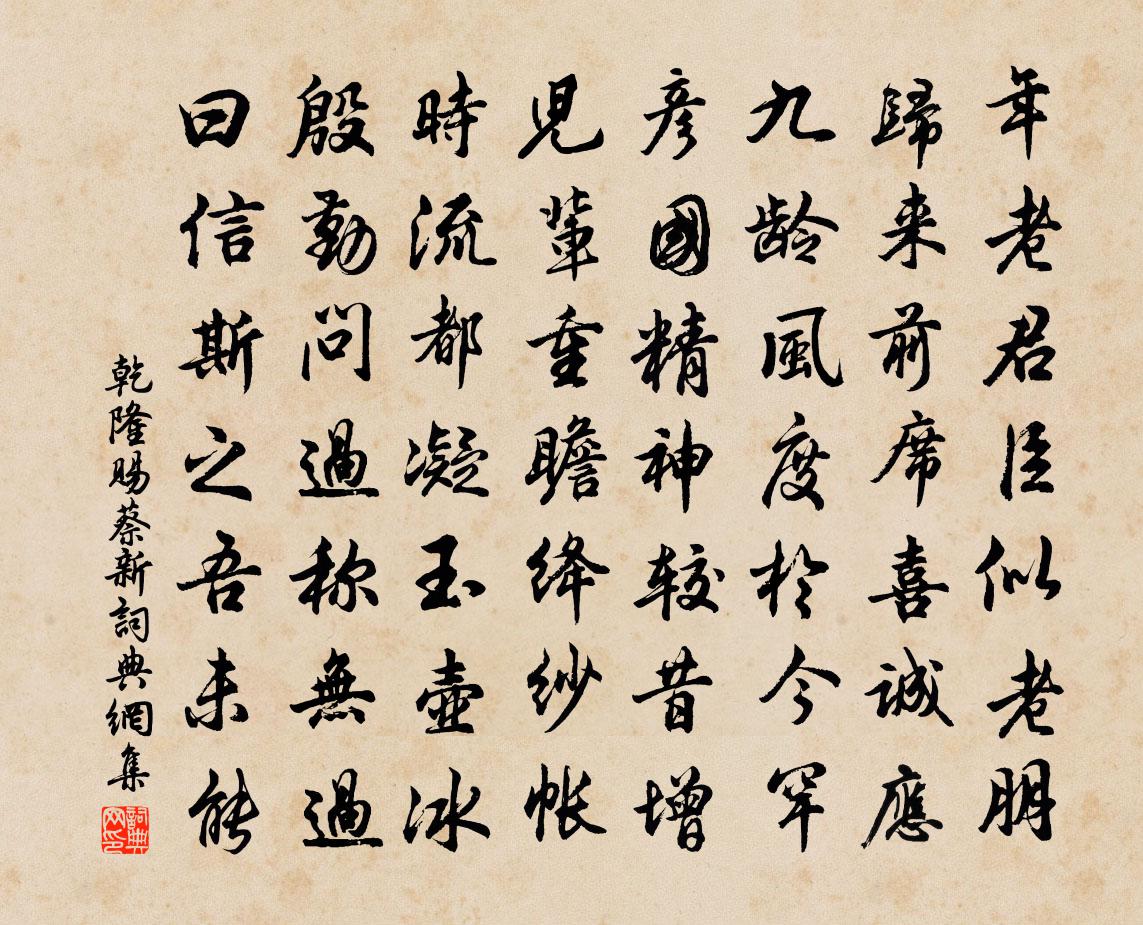 年老君臣似老朋
歸来前席喜誠應
九龄風度於今罕
彦國精神較昔增
児輩重瞻絳紗帳
時流都凝玉壺冰
殷勤問過称無過
曰信斯之吾未能
乾隆賜蔡新詞典網集
詞典网印